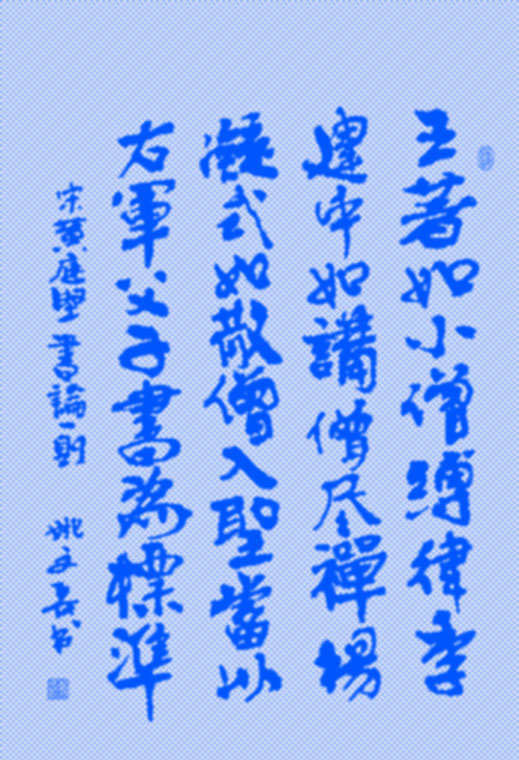 王著如小僧縛律李
建中如講僧尽禪楊
凝式如散僧入聖當以
右軍父子書為標準
宋黄庭堅書論一則 姚文長书